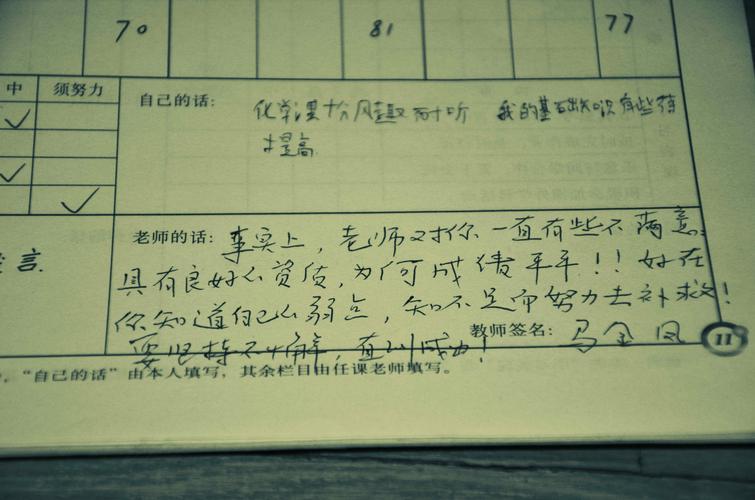 70 81 77
中 须努力
自己的话: 化学课十分风趣耐听 我的基础知识有些待
提高
老师的话: 事实上,老师对你一直有些不满意:
言.
具有良好的资质,为何成绩平平!!好在
你知道自己的弱点,知不足而努力去补救!
教师签名: 马金凤
11
要坚持不懈,直到成功!
,“自己的话”由本人填写,其余栏目由任课老师填写。